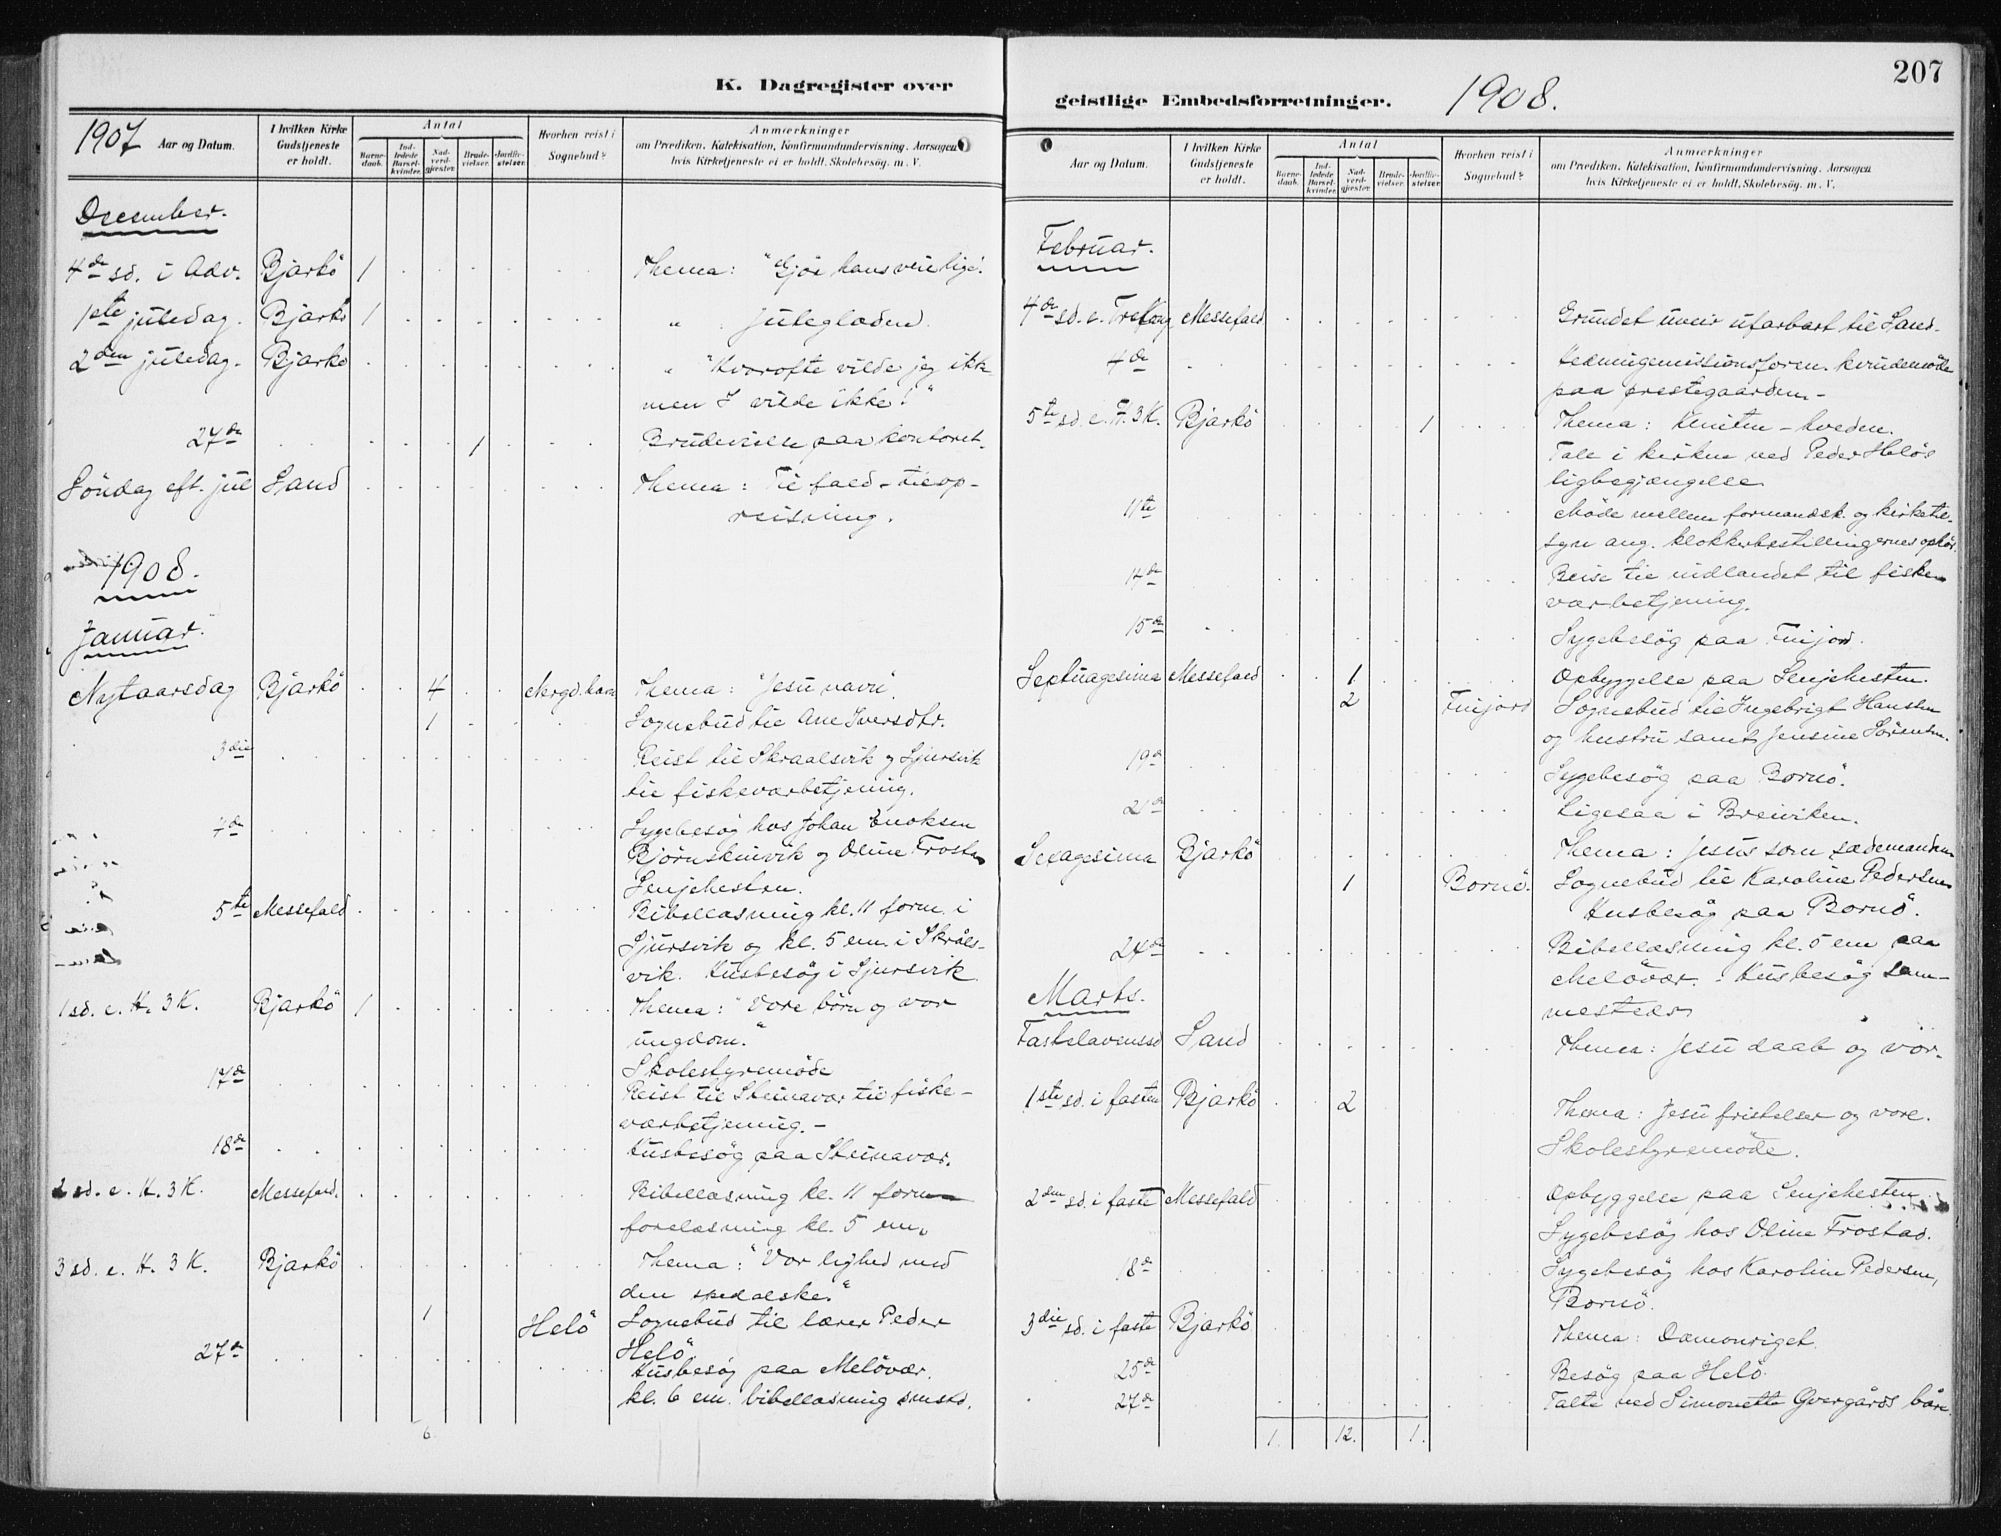 207
K. Dagregister over
geistlige Embedsforretninger. 1908.
1907
Aar og Datum.
I hvilken Kirke Gudstjeneste er holdt.
Antal
Barnedaab.
Indledede Barselkvinder.
Nadverdgjester.
Brudevielser.
Jordfæstelser.
Hvorhen reist i Sognebud?
Anmærkninger
om Prædiken, Katekisation, Konfirmandundervisning, Aarsagen
hvis Kirketjeneste ei er holdt, Skolebesøg. m. V.
December.
4de sd. i Adv. Bjarkö 1 Thema: "Gjör hans veie lige".
1ste juledag. Bjarkö 1 " Juleglæden.
2den juledag. Bjarkö " "Hvorofte vilde jeg ikke
men I vilde ikke!"
27de 1 Brudevielse paa kontoret.
Söndag eft. jul Sand Thema: Til fald – til op-
reisning.
1908.
Januar.
Nytaarsdag Bjarkö 4 Thema: "Jesu navn".
1 Sognebud til Ane Iversdtr.
3die Reist til Skraalsvik og Sjursvik
til fiskeværbetjening.
4de Sygebesög hos Johan Enoksen
Bjørnskinvik og Oline Frostad
Senjehesten.
5te Messefald Bibellæsning kl. 11 form. i
Sjursvik og kl. 5 em. i Skråls-
vik. Husbesög i Sjursvik
1 sd. e. H. 3 K. Bjarkö 1 Thema: "Vore börn og vor
ungdom."
Skolestyremöde
17de Reist til Steinavær til fiske-
værbetjening.-
18de Husbesög paa Steinavær.
2 sd. e. H. 3 K. Messefald. Bibellæsning kl. 11 form
forelæsning kl. 5 em.
3 sd. e. H. 3 K. Bjarkö Thema: "Vor lighed med
den spedalske."
1 Helö Sognebud til lærer Peder
Helö.
27de Husbesög paa Melövær.
kl. 6 em. bibellæsning smsted.
6
Aar og Datum.
I hvilken Kirke Gudstjeneste er holdt.
Antal
Barnedaab.
Indledede Barselkvinder.
Nadverdgjester.
Brudevielser.
Jordfæstelser.
Hvorhen reist i Sognebud?
Anmærkninger
om Prædiken, Katekisation, Konfirmandundervisning, Aarsagen
hvis Kirketjeneste ei er holdt, Skolebesøg. m. V.
Februar.
4de sd. e. Tre Kong Messefald Grundet uveir ufarbart til Sand.
4de Hedningemissionsforen. kvindemöde
paa prestegaarden.-
5te sd. e. H. 3 K. Bjarkö 1 Thema: Klinten – hveden.
Tale i kirken ved Peder Helös
ligbegjængelse
11te Möde mellem formandsk. og kirketil-
syn ang. klokkerbestillingernes ophör.
14de Reise til indlandet til fiske-
værbetjening.
15de Sygebesög paa Finjord.
Septuagesima Messefald 1 Opbyggelse paa Senjehesten.
2 Finjord Sognebud til Ingebrigt Hansen
og hustru samt Jensine Sörensen.
19de Sygebesög paa Bornö.
21de Ligesaa i Breiviken.
Sexagesima Bjarkö Thema: Jesus som sædemanden
1 Bornö. Sognebud til Karoline Pedersen
Husbesög paa Bornö.
24de Bibellæsning kl. 5 em paa
Melövær. - Husbesög sam-
mesteds
Marts.
Fastelavenssd Sand Thema: Jesu daab og vor.
1ste sd. i fasten Bjarkö 2 Thema: Jesu fristelser og vore.
Skolestyremöde.
2den sd. i faste Messefald Opbyggelse paa Senjehesten
Sygebesög hos Oline Frostad.
18de Sygebesög hos Karoline Pedersen,
Bornö.
3die sd. i faste Bjarkö Thema: Dæmonriget.
25de Besög paa Helö.
27de Talte ved Simonette Gvergårds båre.
1. 12. 1.